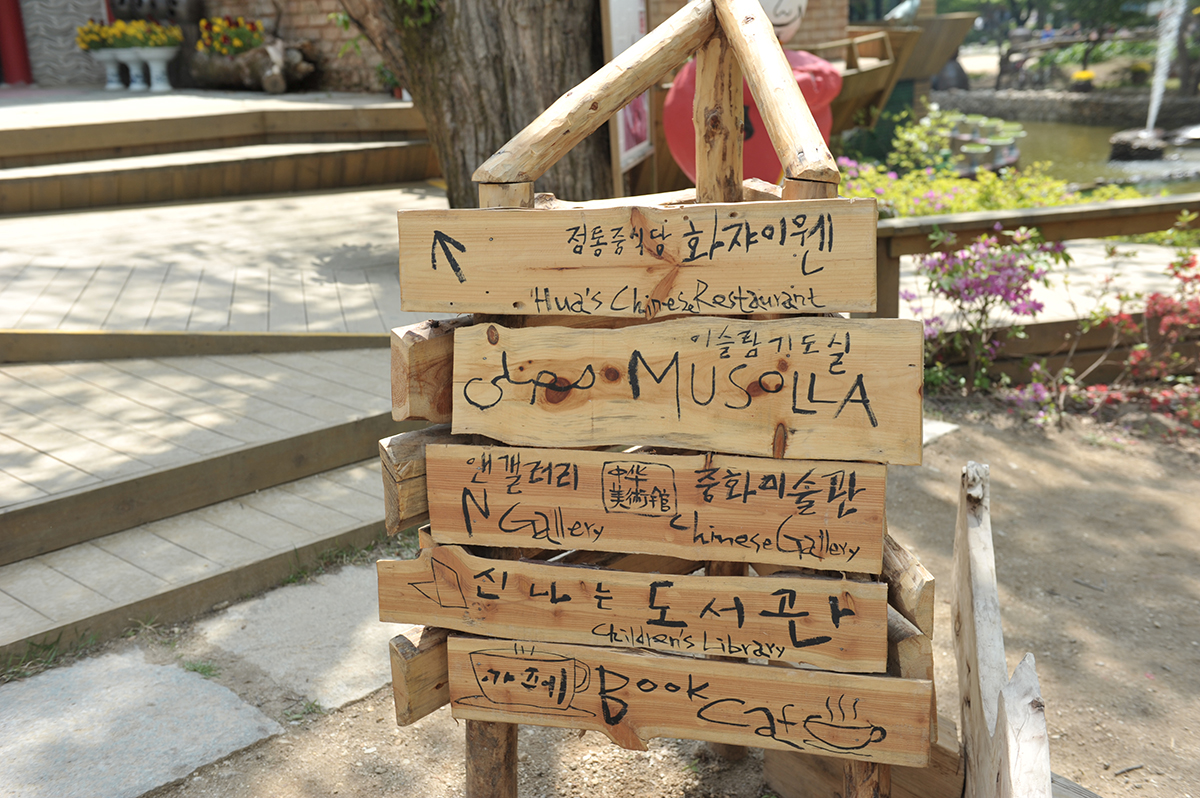 정통중식당 화챠이웬
Hua's Chinese Restaurant
이슬람기도실
مصلى MUSOLLA
앤갤러리 中华美術館 중화미술관
N Gallery Chinese Gallery
신나는 도서관
Children's Library
카프에 Book Caf